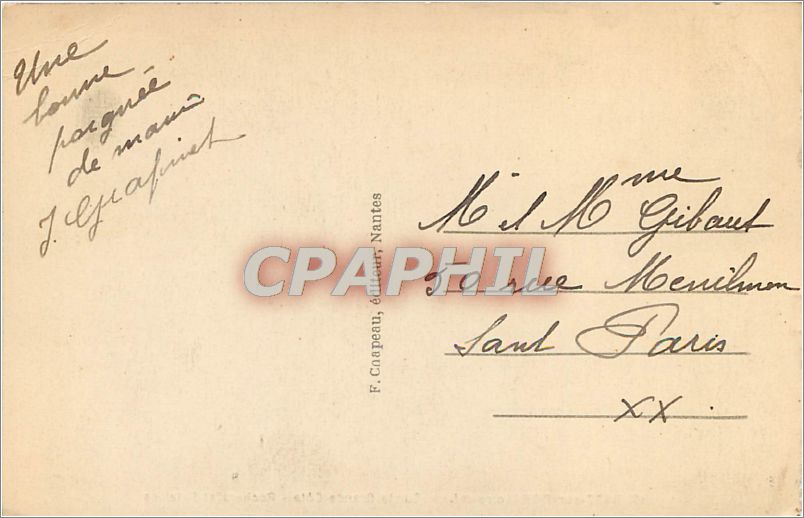 Une
bonne
poignée
de main
J. Grafinet
F. Chapeau, éditeur, Nantes
CPAPHIL
M et Mme Gibaut
50 rue Menilmon
sant Paris
XX